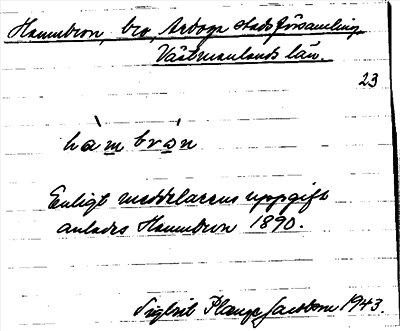 Hamnbron, bro, Arboga stadsförsamling
Västmanlands län.
23
hàm brón
Enligt meddelarens uppgift
anlades Hamnbron 1890.
Sigbrit Plænge Jacobson 1943.